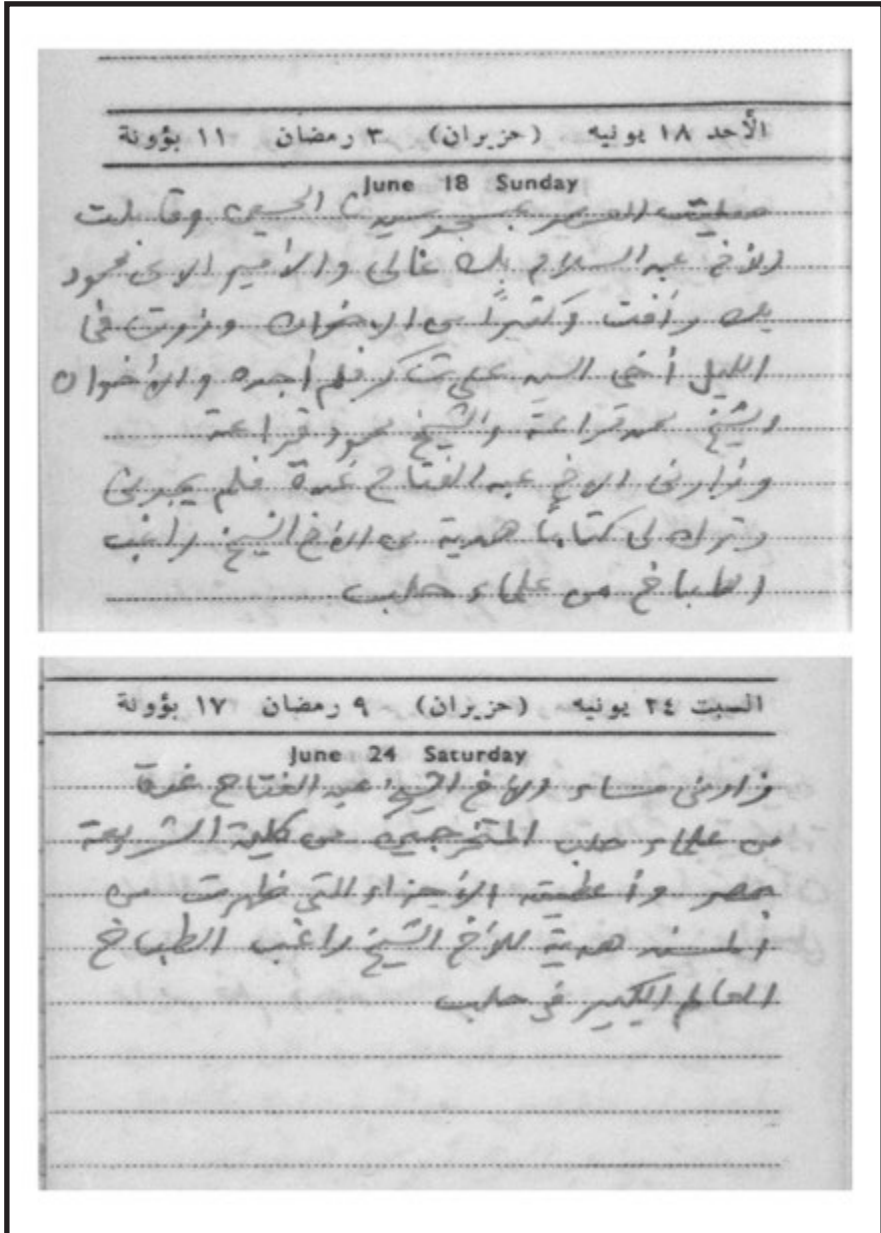 الأحد ١٨ يونيه (حزيران) ٣ رمضان ١١ بؤونة
June 18 Sunday
صليت العصر بمسجد سيدنا الحسين وقابلت
الأخ عبد السلام بك غالى والأميرالاى محمود
بك رأفت وكثيرًا من الاخوان وزرت فى
الليل أخى السيد على شاكر فلم أجده والأخوان
الشيخ قراعة والشيخ محمود قراعة
وزارنى الاخ عبد الفتاح غدة فلم يجدنى
وترك لى كتابًا هدية من الأخ الشيخ راغب
الطباخ من علماء حلب
السبت ٢٤ يونيه (حزيران) ٩ رمضان ١٧ بؤونة
June 24 Saturday
زارنى مساء الأخ الشيخ عبد الفتاح غدة
من علماء حلب المتخرجين من كلية الشريعة
بمصر وأعطيته الأجزاء التى ظهرت من
المسند هدية للأخ الشيخ راغب الطباخ
العالم الكبير فى حلب